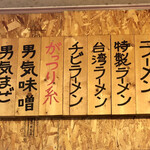 ラーメン
特製ラーメン
台湾ラーメン
チビラーメン
がっつり小糸
男気味噌
男気まぜ